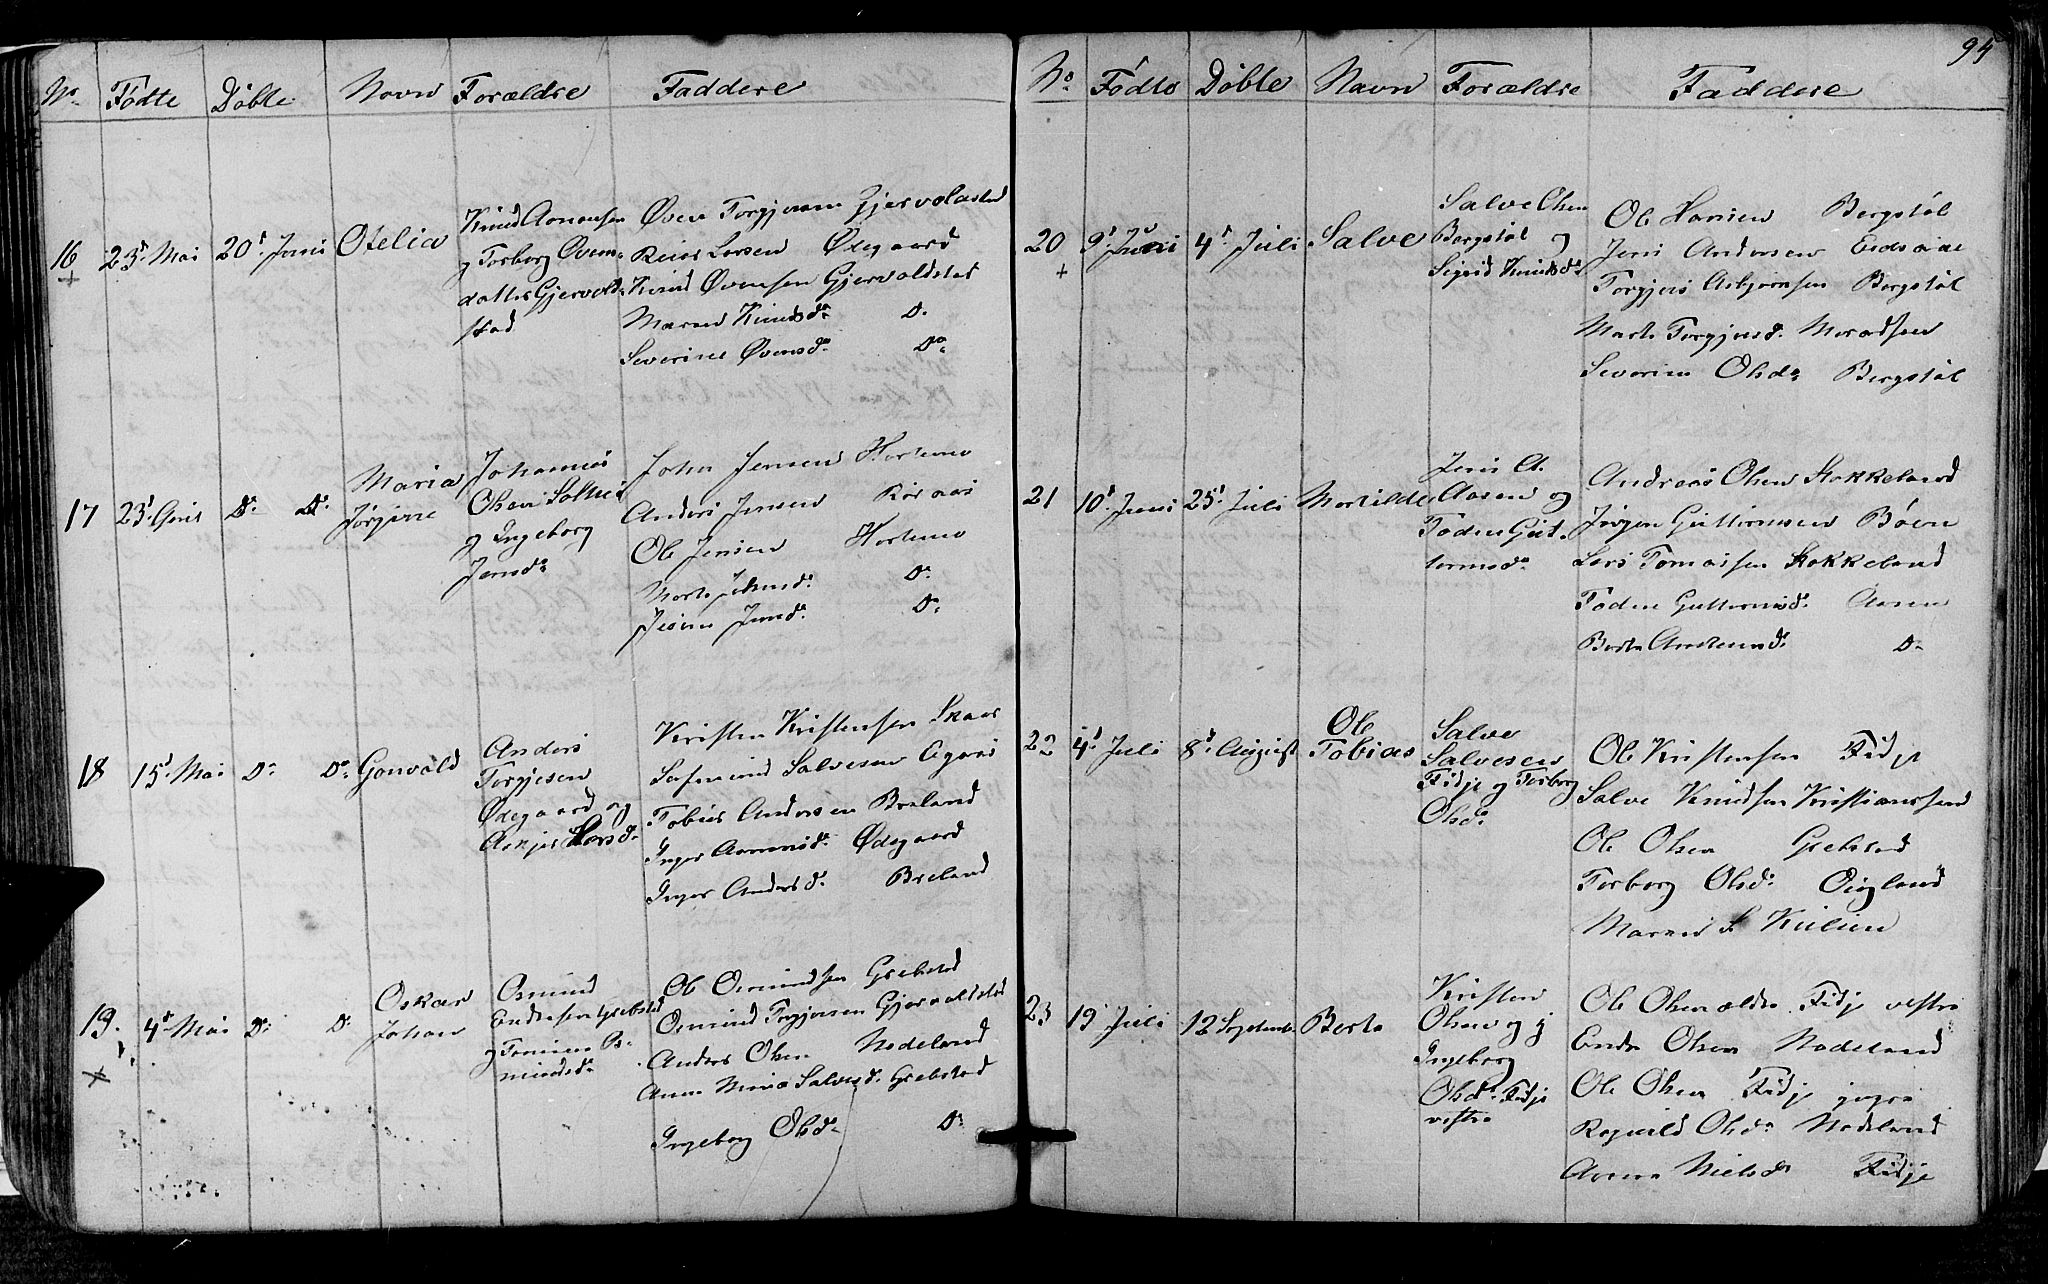 No. Fødte Døbte Navn Forældre Faddere
16 23d. Mai 20d Juni Otelia
Knud Aanensen
og Torborg Øvens-
datter Gjervold-
stad
Øven Torgjersen Gjervoldstad
Reier Larsen Ødegaard
Knud Øvensen Gjervoldstad
Maren Knudsd. Do.
Severine Øvensd. Do.
17 23d. Do. Do. Maria
Jørgine
Johannes
Olsen
og Ingeborg
Jensd.
John Jensen Hortemo
Anders Jensen
Ole Jensen Hortemo
Marte Johnsd. Do.
Jensd. Do.
18 15d. Mai Do. Do. Gonvald
Anders
Torgjesen
Ødegaard og
Larsd.
Kristen Kristensen Skaar
Salvesen
Tobias Andersen Breland
Inger Ødegaard
Inger Andersd. Breland
19. 4d. Mai Do. Do. Oskar
Johan
Osmund
Endresen Grebstad
og Os-
mundsd.
Ole Osmundsen Grebstad
Osmund Torgjersen Gjervoldstad
Anders Olsen Nodeland
Anne Maria Salvesd. Grebstad
Ingeborg Olsd. Do.
94
No. Fødte Døbte Navn Forældre Faddere
20 9d. Juni 4d. Juli Salve
Salve Olsen
Bergstøl og
Sigrid Knudsd.
Ole Hansen Bergstøl
Jens Andersen
Torgjers Asbjørnsen Bergstøl
Marte Torgjersd.
Severine Olsd. Bergstøl
21 10d. Juni 25d. Juli
Jens A.
Aasen og
Todne Gut-
tormsd.
Andreas Olsen Stokkeland
Jørgen Guttormsen Bøen
Lars Tomassen Stokkeland
Todne Guttormsd. Aasen
Berte Do.
22 4d. Juli 8d. August Ole
Tobias
Salve
Salvesen
Fidje og Torborg
Olsd.
Ole Kristensen Fidje
Salve Knudsen Kristianssand
Ole Olsen Grebstad
Torborg Olsd. Øigland
Maren S.
23 19 Juli 12 Septemb. Berte
Kristen
Olsen og
Ingeborg
Olsd. Fidje
vestre
Ole Olsen ældre Fidje vestre
Endre Olsen Nodeland
Ole Olsen Fidje yngre
Ragnild Olsd. Nodeland
Anne Nielsd. Fidje